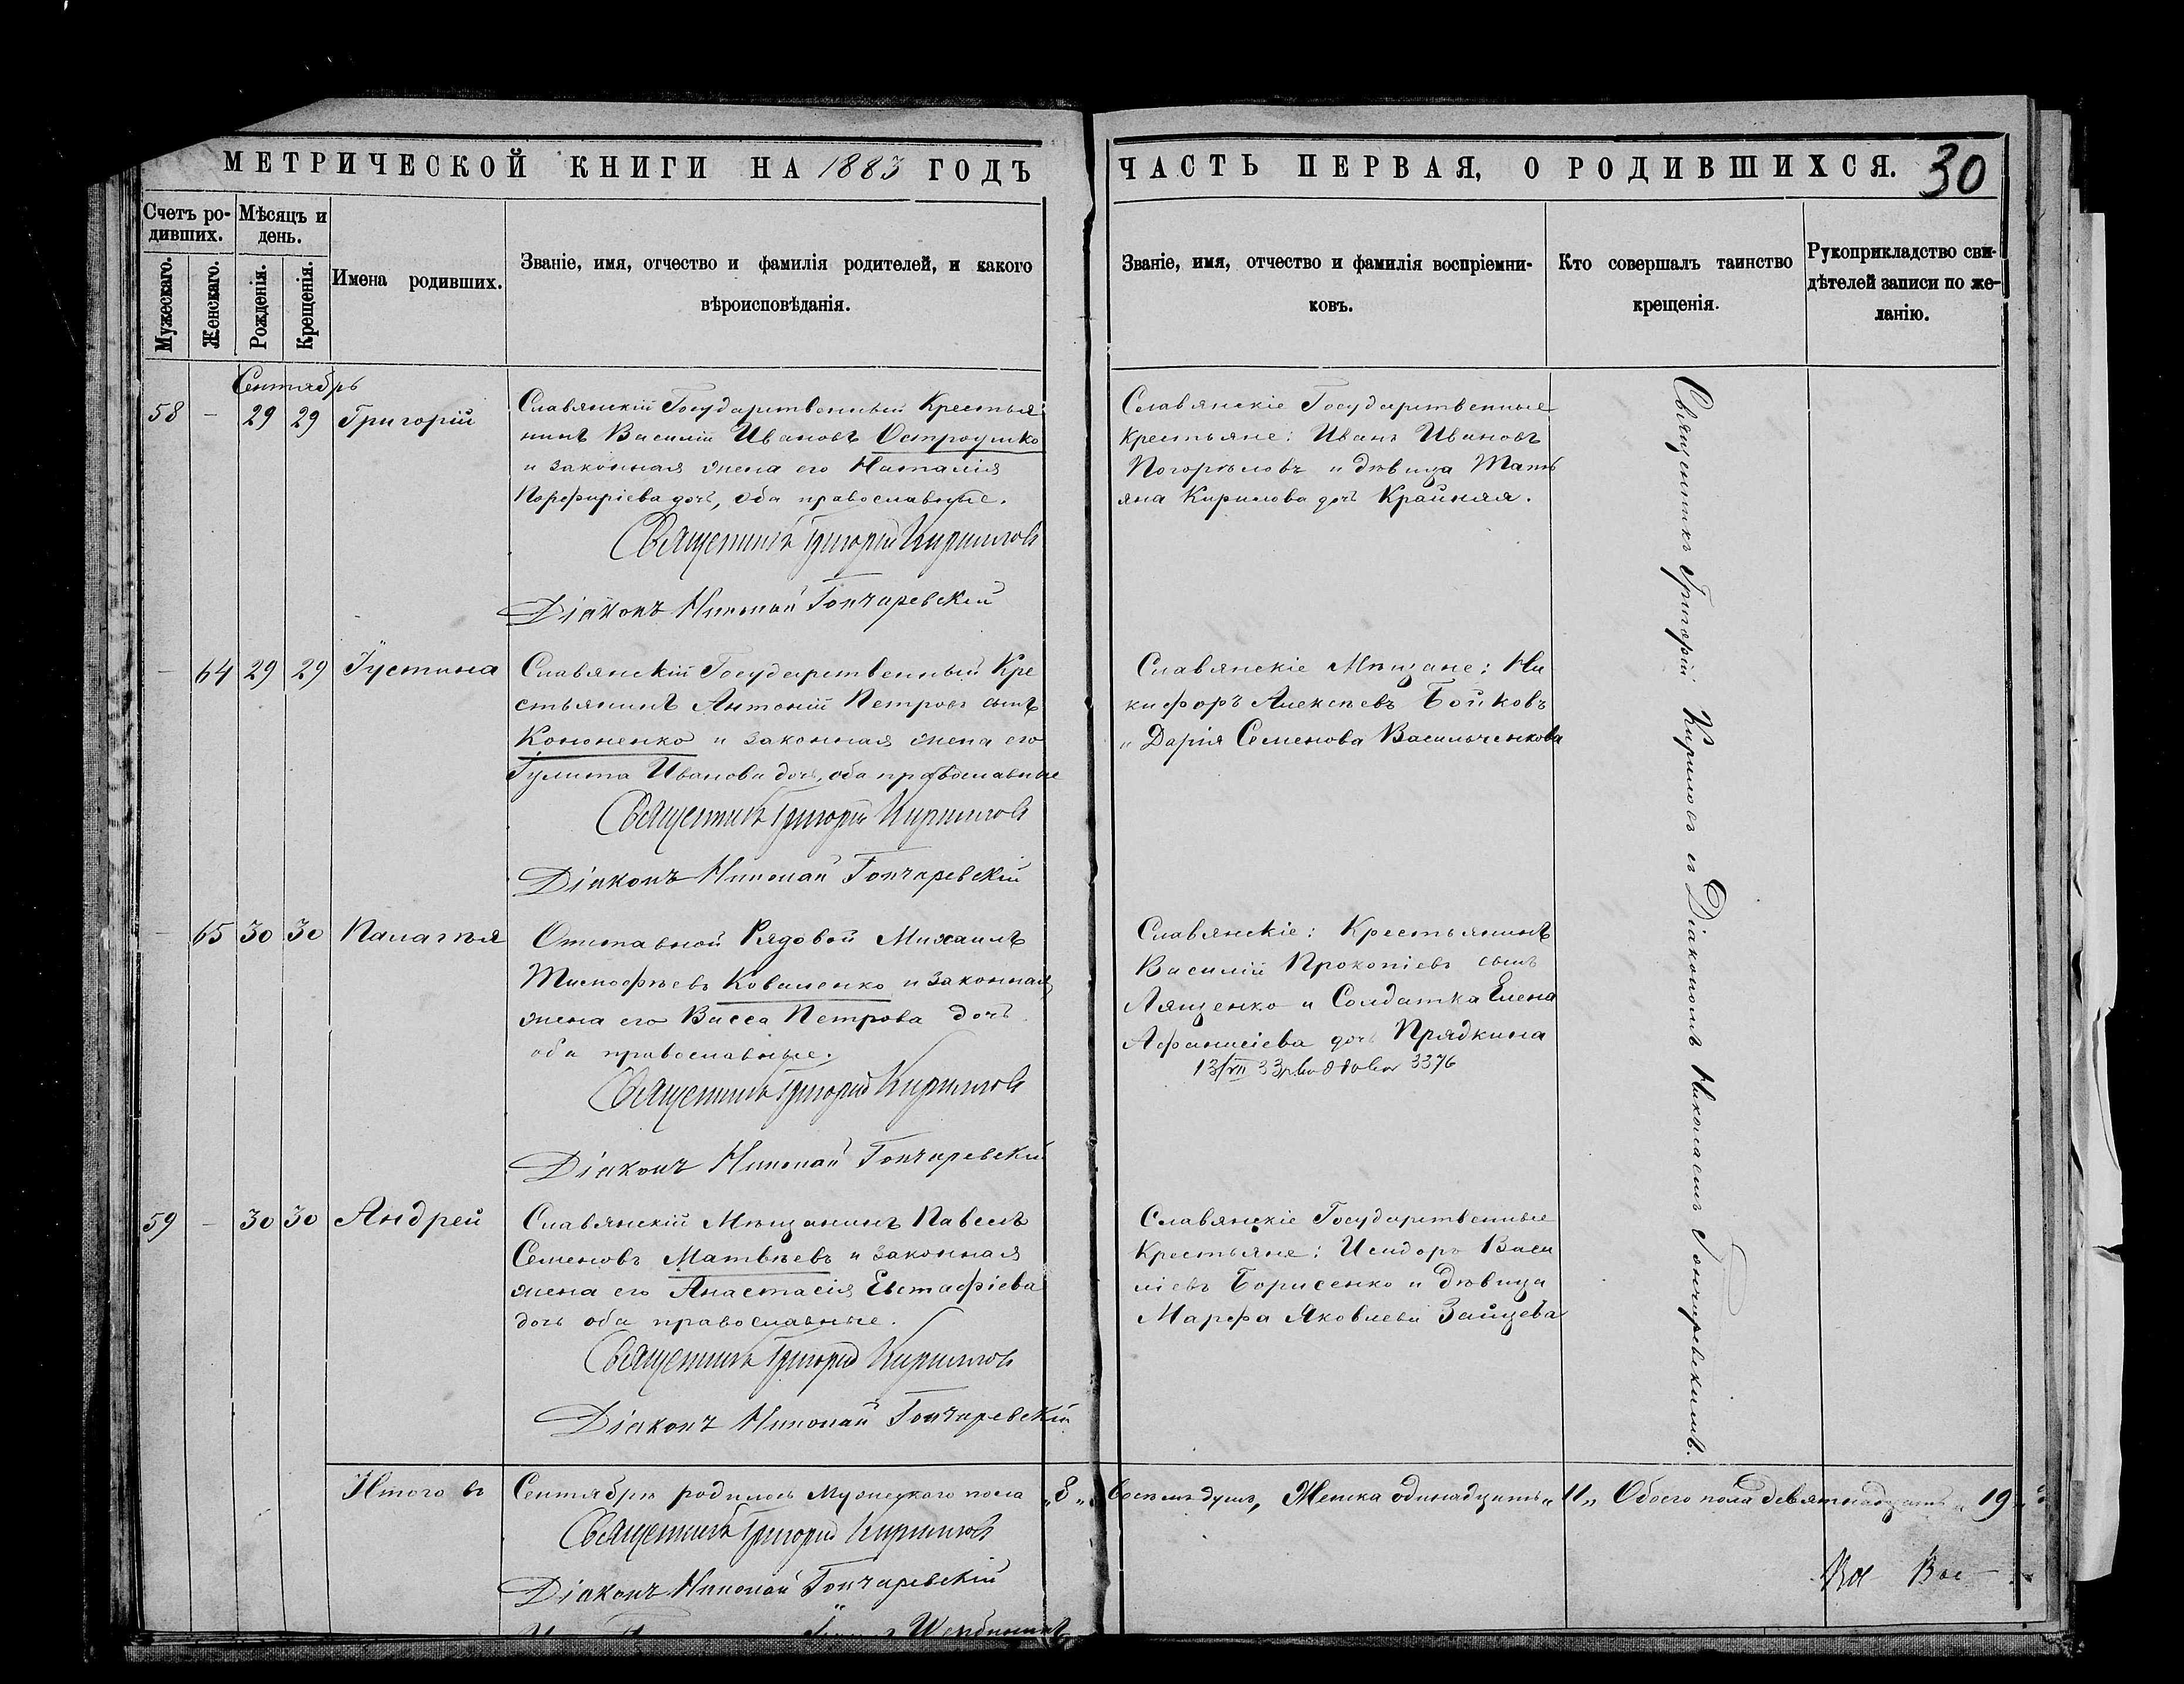 МЕТРИЧЕСКОЙ КНИГИ НА 1883 ГОДЪ
Счетъ ро-
дившихъ.
Мѣсяцъ и
день.
Мужескаго.
Женскаго.
Рожденія.
Крещенія.
Имена родивших.
Званіе, имя, отчество и фамилія родителей, и какого
вѣроисповѣданія.
Сентябрь
58 — 29 29 Григорій
Славянскій Государственный Крестья
нинъ Василій Ивановъ Остроушко
и законная жена его Наталія
Порфиріева дочь, оба православные.
Священникъ Григорій Кириллов
Діаконъ Николай Гончаревскій
— 64 29 29 Іустина
Славянскій Государственный Кре
стьянинъ Антоній Петровъ сынъ
Кононенко и законная жена его
Іулита Иванова дочь, оба православные
Священникъ Григорій Кириллов
Діаконъ Николай Гончаревскій
— 65 30 30 Палагѣя
Отставной Рядовой Михаилъ
Тимофѣевъ Коваленко и законная
жена его Васса Петрова дочь
оба православные.
Священникъ Григорій Кириллов
Діаконъ Николай Гончаревскій
59 — 30 30 Андрей
Славянскій Мѣщанинъ Павелъ
Семеновъ Матвѣевъ и законная
жена его Анастасія Евстафіева
дочь оба православные.
Священникъ Григорій Кириллов
Діаконъ Николай Гончаревскій
Итого въ Сентябрѣ родилось Мужескаго пола „8„
Священникъ Григорій Кириллов
Діаконъ Николай Гончаревскій
ЧАСТЬ ПЕРВАЯ, О РОДИВШИХСЯ. 30
Званіе, имя, отчество и фамилія воспріемни-
ковъ.
Кто совершалъ таинство
крещенія.
Рукоприкладство сви-
дѣтелей записи по же-
ланію.
Славянскіе Государственные
крестьяне: Иванъ Ивановъ
Погорѣловъ и дѣвица Тать
яна Кирилова дочь Крайняя.
Славянскіе Мѣщане: Ни
кифоръ Алексѣевъ Бойковъ
и Дарія Семенова Васильченкова
Славянскіе: Крестьянинъ
Василій Прокопіевъ сынъ
Лященко и Солдатка Елена
Афанасіева дочь Прядкина
13/VII 33 3376
Славянскіе Государственные
Крестьяне: Исидоръ Васи
ліевъ Борисенко и дѣвица
Марфа Яковлева Зайцева
Священникъ Григорій Кириловъ съ Діакономъ Николаемъ Гончаревскимъ.
восемь душъ, Женска одинадцать „11„ Обоего пола девятнадцать „19„